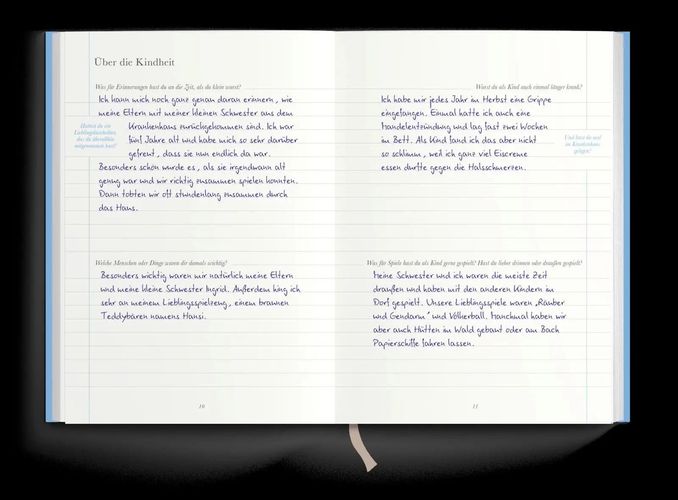 Über die Kindheit
Was für Erinnerungen hast du an die Zeit, als du klein warst?
Ich kann mich noch ganz genau daran erinnern, wie
meine Eltern mit meiner kleinen Schwester aus dem
Krankenhaus zurückgekommen sind. Ich war
fünf Jahre alt und habe mich so sehr darüber
gefreut, dass sie nun endlich da war.
Besonders schön wurde es, als sie irgendwann alt
genug war und wir richtig zusammen spielen konnten.
Dann tobten wir oft stundenlang zusammen durch
das Haus.
Hattest du ein
Lieblingskuscheltier,
das du überallhin
mitgenommen hast?
Welche Menschen oder Dinge waren dir damals wichtig?
Besonders wichtig waren mir natürlich meine Eltern
und meine kleine Schwester Ingrid. Außerdem hing ich
sehr an meinem Lieblingsspielzeug, einem braunen
Teddybären namens Hansi.
10
Warst du als Kind auch einmal länger krank?
Ich habe mir jedes Jahr im Herbst eine Grippe
eingefangen. Einmal hatte ich auch eine
Mandelentzündung und lag fast zwei Wochen
im Bett. Als Kind fand ich das aber nicht
so schlimm, weil ich ganz viel Eiscreme
essen durfte gegen die Halsschmerzen.
Und hast du mal
im Krankenhaus
gelegen?
Was für Spiele hast du als Kind gerne gespielt? Hast du lieber drinnen oder draußen gespielt?
Meine Schwester und ich waren die meiste Zeit
draußen und haben mit den anderen Kindern im
Dorf gespielt. Unsere Lieblingsspiele waren „Räuber
und Gendarm“ und Völkerball. Manchmal haben wir
aber auch Hütten im Wald gebaut oder am Bach
Papierschiffe fahren lassen.
11